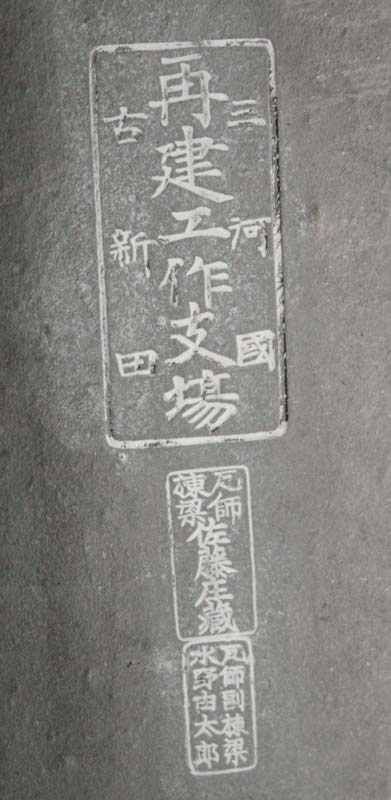 三河國
再建工作支場
古新田
瓦師
棟梁
佐藤庄蔵
瓦師副棟梁
水野由太郎